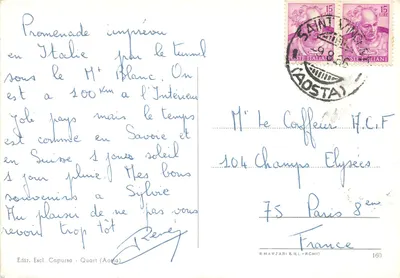 Promenade imprévu
en Italie par le tunnel
sous le Mt Blanc. On
est a 100 Km a l'Intérieur
Joli pays mais le temps
est comme en Savoie et
en Suisse 1 jour soleil
1 jour pluie. Mes bons
souvenirs a Sylvie
Au plaisir de ne pas vous
revoir trop tôt
René
Ediz. Escl. Cogruzzo - Quart (Aosta)
15
15
SAINT VINCENT
9.8.66
(AOSTA)
Mr Le Coiffeur A.C.F
104 Champs Elysées
75 Paris 8ème
France
160